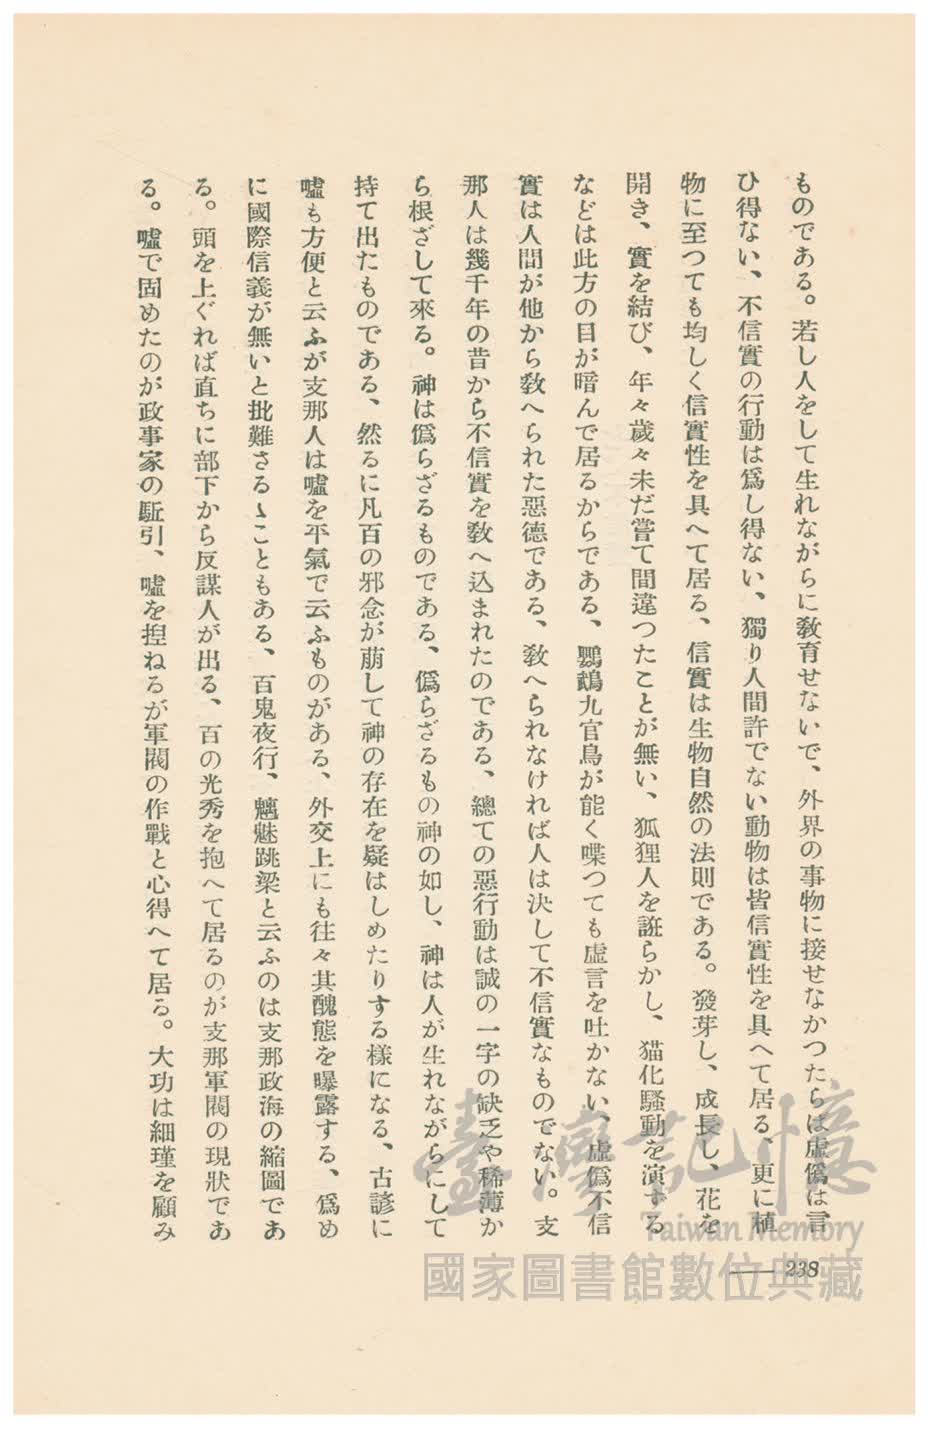 ものである。若し人をして生れながらに敎育せないで、外界の事物に接せなかつたらは虛僞は言
ひ得ない、不信實の行動は爲し得ない、獨り人間許でない動物は皆信實性を具へて居る、更に植
物に至つても均しく信實性を具へて居る、信實は生物自然の法則である。發芽し、成長し、花を
開き、實を結び、年々歲々未だ嘗て間違つたことが無い、狐狸人を誑らかし、猫化騷動を演ずる
などは此方の目が暗んで居るからである、鸚鵡九官鳥が能く喋つても虛言を吐かない、虛僞不信
實は人間が他から敎へられた惡德である、敎へられなければ人は決して不信實なものでない。支
那人は幾千年の昔から不信實を敎へ込まれたのである、總ての惡行動は誠の一字の缺乏や稀薄か
ら根ざして來る。神は僞らざるものである、僞らざるもの神の如し、神は人が生れながらにして
持て出たものである、然るに凡百の邪念が萠して神の存在を疑はしめたりする樣になる、古諺に
噓も方便と云ふが支那人は噓を平氣で云ふものがある、外交上にも往々其醜態を曝露する、爲め
に國際信義が無いと批難さるゝこともある、百鬼夜行、魑魅跳梁と云ふのは支那政海の縮圖であ
る。頭を上ぐれば直ちに部下から反謀人が出る、百の光秀を抱へて居るのが支那軍閥の現狀であ
る。噓で固めたのが政事家の駈引、噓を揑ねるが軍閥の作戰と心得へて居る。大功は細瑾を顧み
238
臺灣記憶
Taiwan Memory
國家圖書館數位典藏